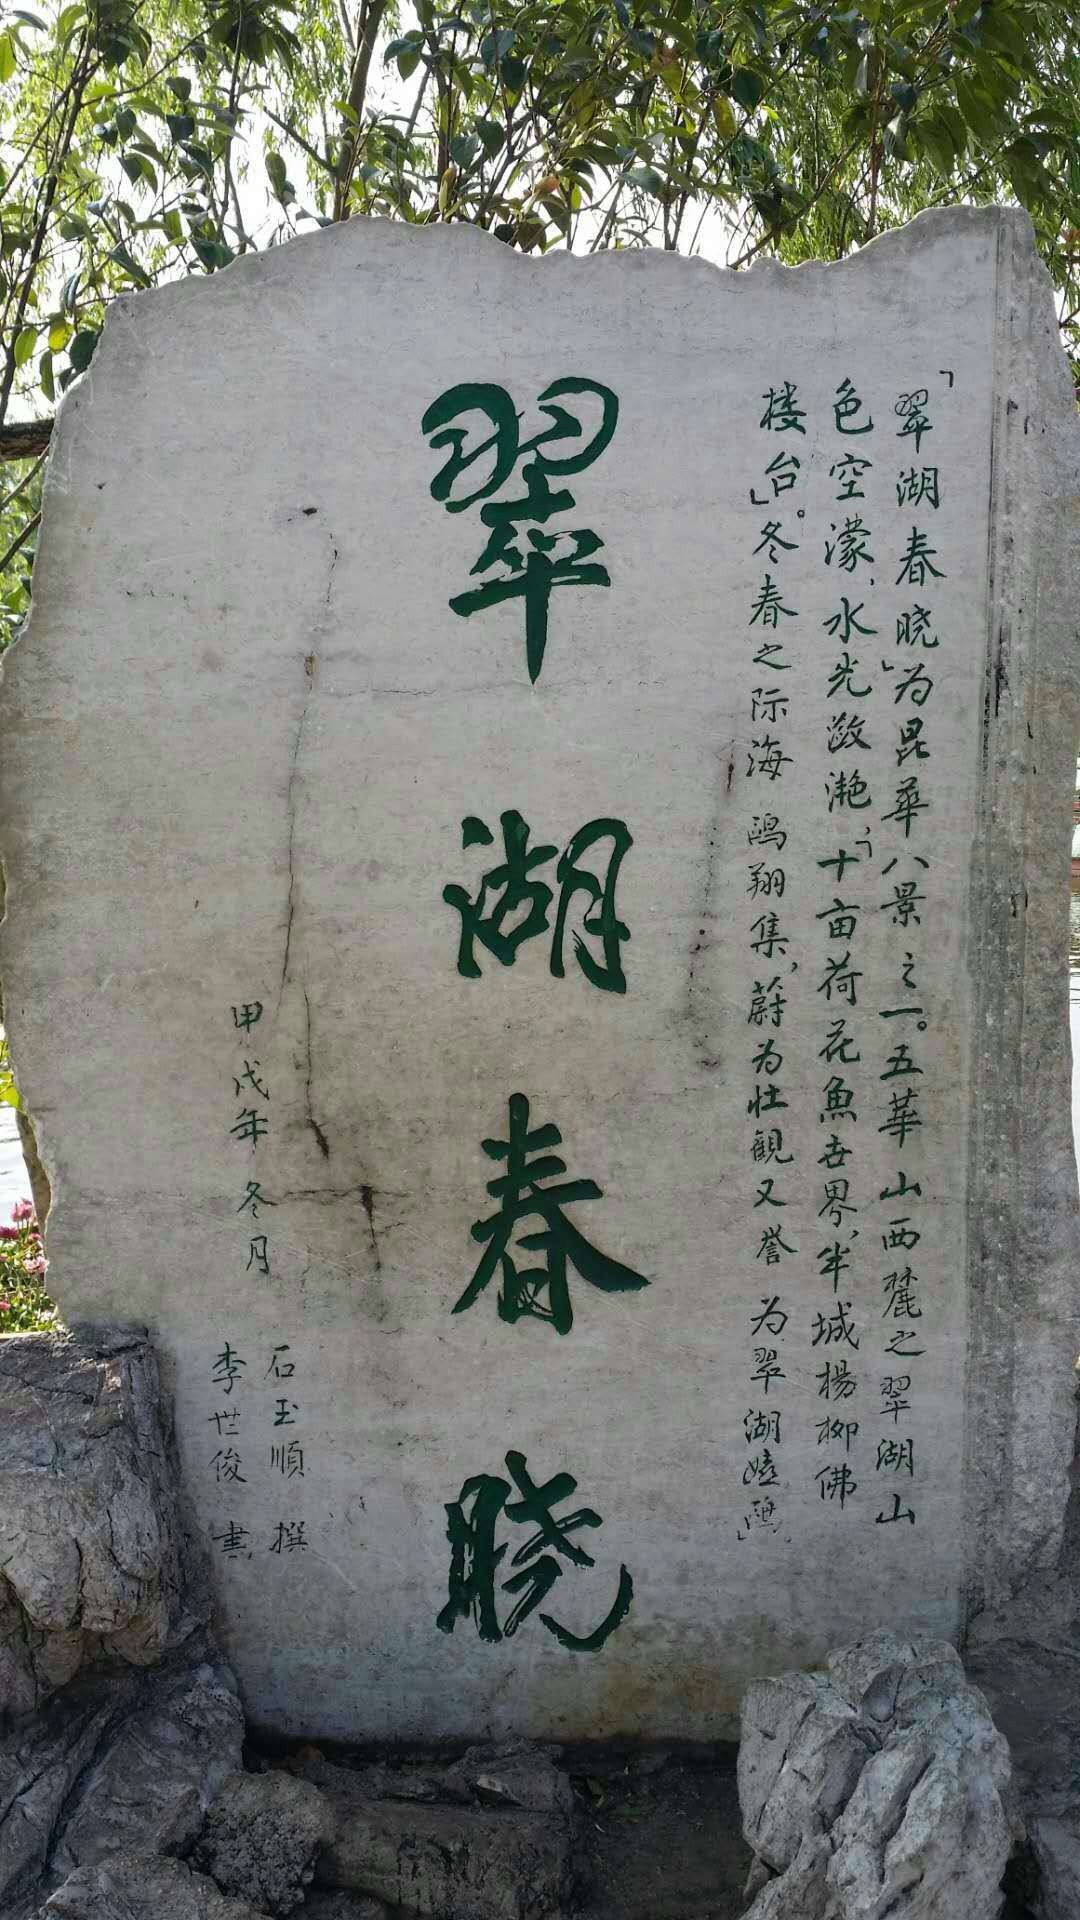 「翠湖春晓」为昆華八景之一。五華山西麓之翠湖山
色空濛、水光潋滟、「十亩荷花魚世界，半城楊柳佛
楼台」。冬春之际海鸥翔集，蔚为壮観又誉为翠湖嬉鷗」
翠湖春晓
甲戌年冬月
石玉順 撰
李世俊 書